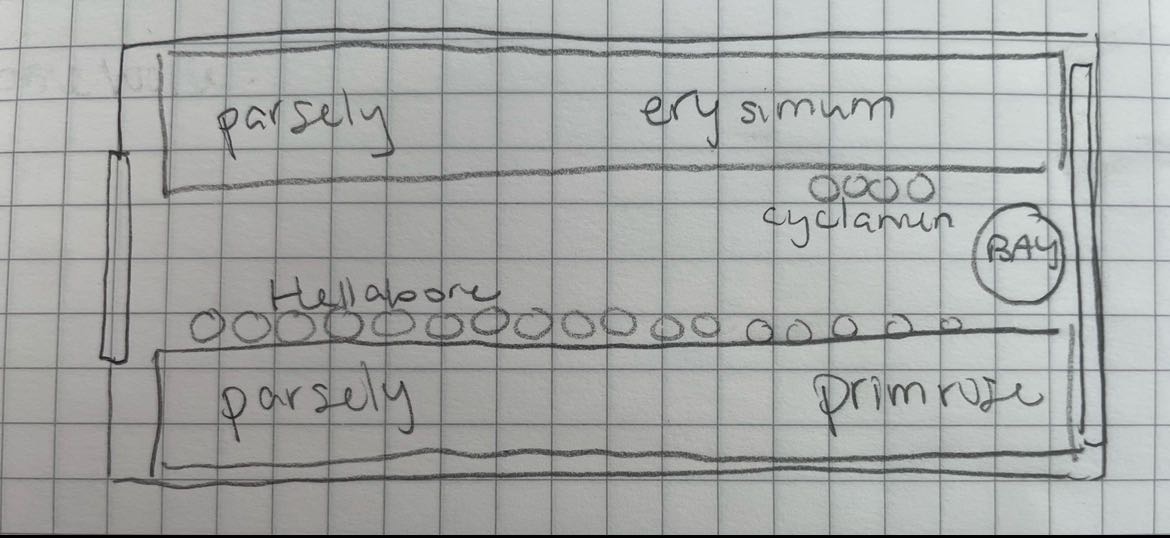 parsely erysimum
cyclamen
BAY
Hellabore
parsely primrose